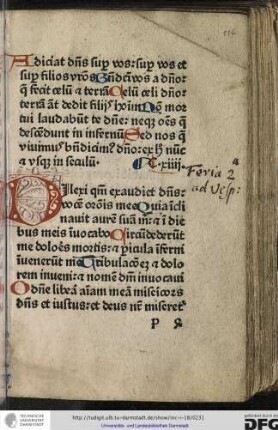 Adiciat dñs suꝑ vos: suꝑ vos et
suꝑ filios vr̃os Bñdicti vos a dño:
q̃ fecit celũ ⁊ terrã Celũ celi dño:
terrã aũt dedit filijs hoĩm Nõ mor
tui laudabũt te dñe: neqꝫ oẽs q̃
descẽdunt in infernũ Sed nos q̃
viuimus bñdicimꝰ dño: ex hͦ nũc
⁊ vsqꝫ in seculũ. Cxiiij.
Feria 2ª
ad Vesp:
Dilexi qm̃ exaudiet dñs:
vocẽ or̃ois mee Quia icli
nauit aurẽ suã m̃: ⁊ ĩ die
bus meis ĩuocabo Circũdederũt
me dolor̃es mortis: ⁊ pericula ĩferni
ĩuenerũt me Tribulacõeꝫ ⁊ dolo
rem inueni: ⁊ nomẽ dñi inuocaui
O dñe liberã aĩam meã misericors
dñs et iustus: et deus nr̃ miseret̃
TECHNISCHE UNIVERSITÄT DARMSTADT
Universitäts- und Landesbibliothek Darmstadt
DFG